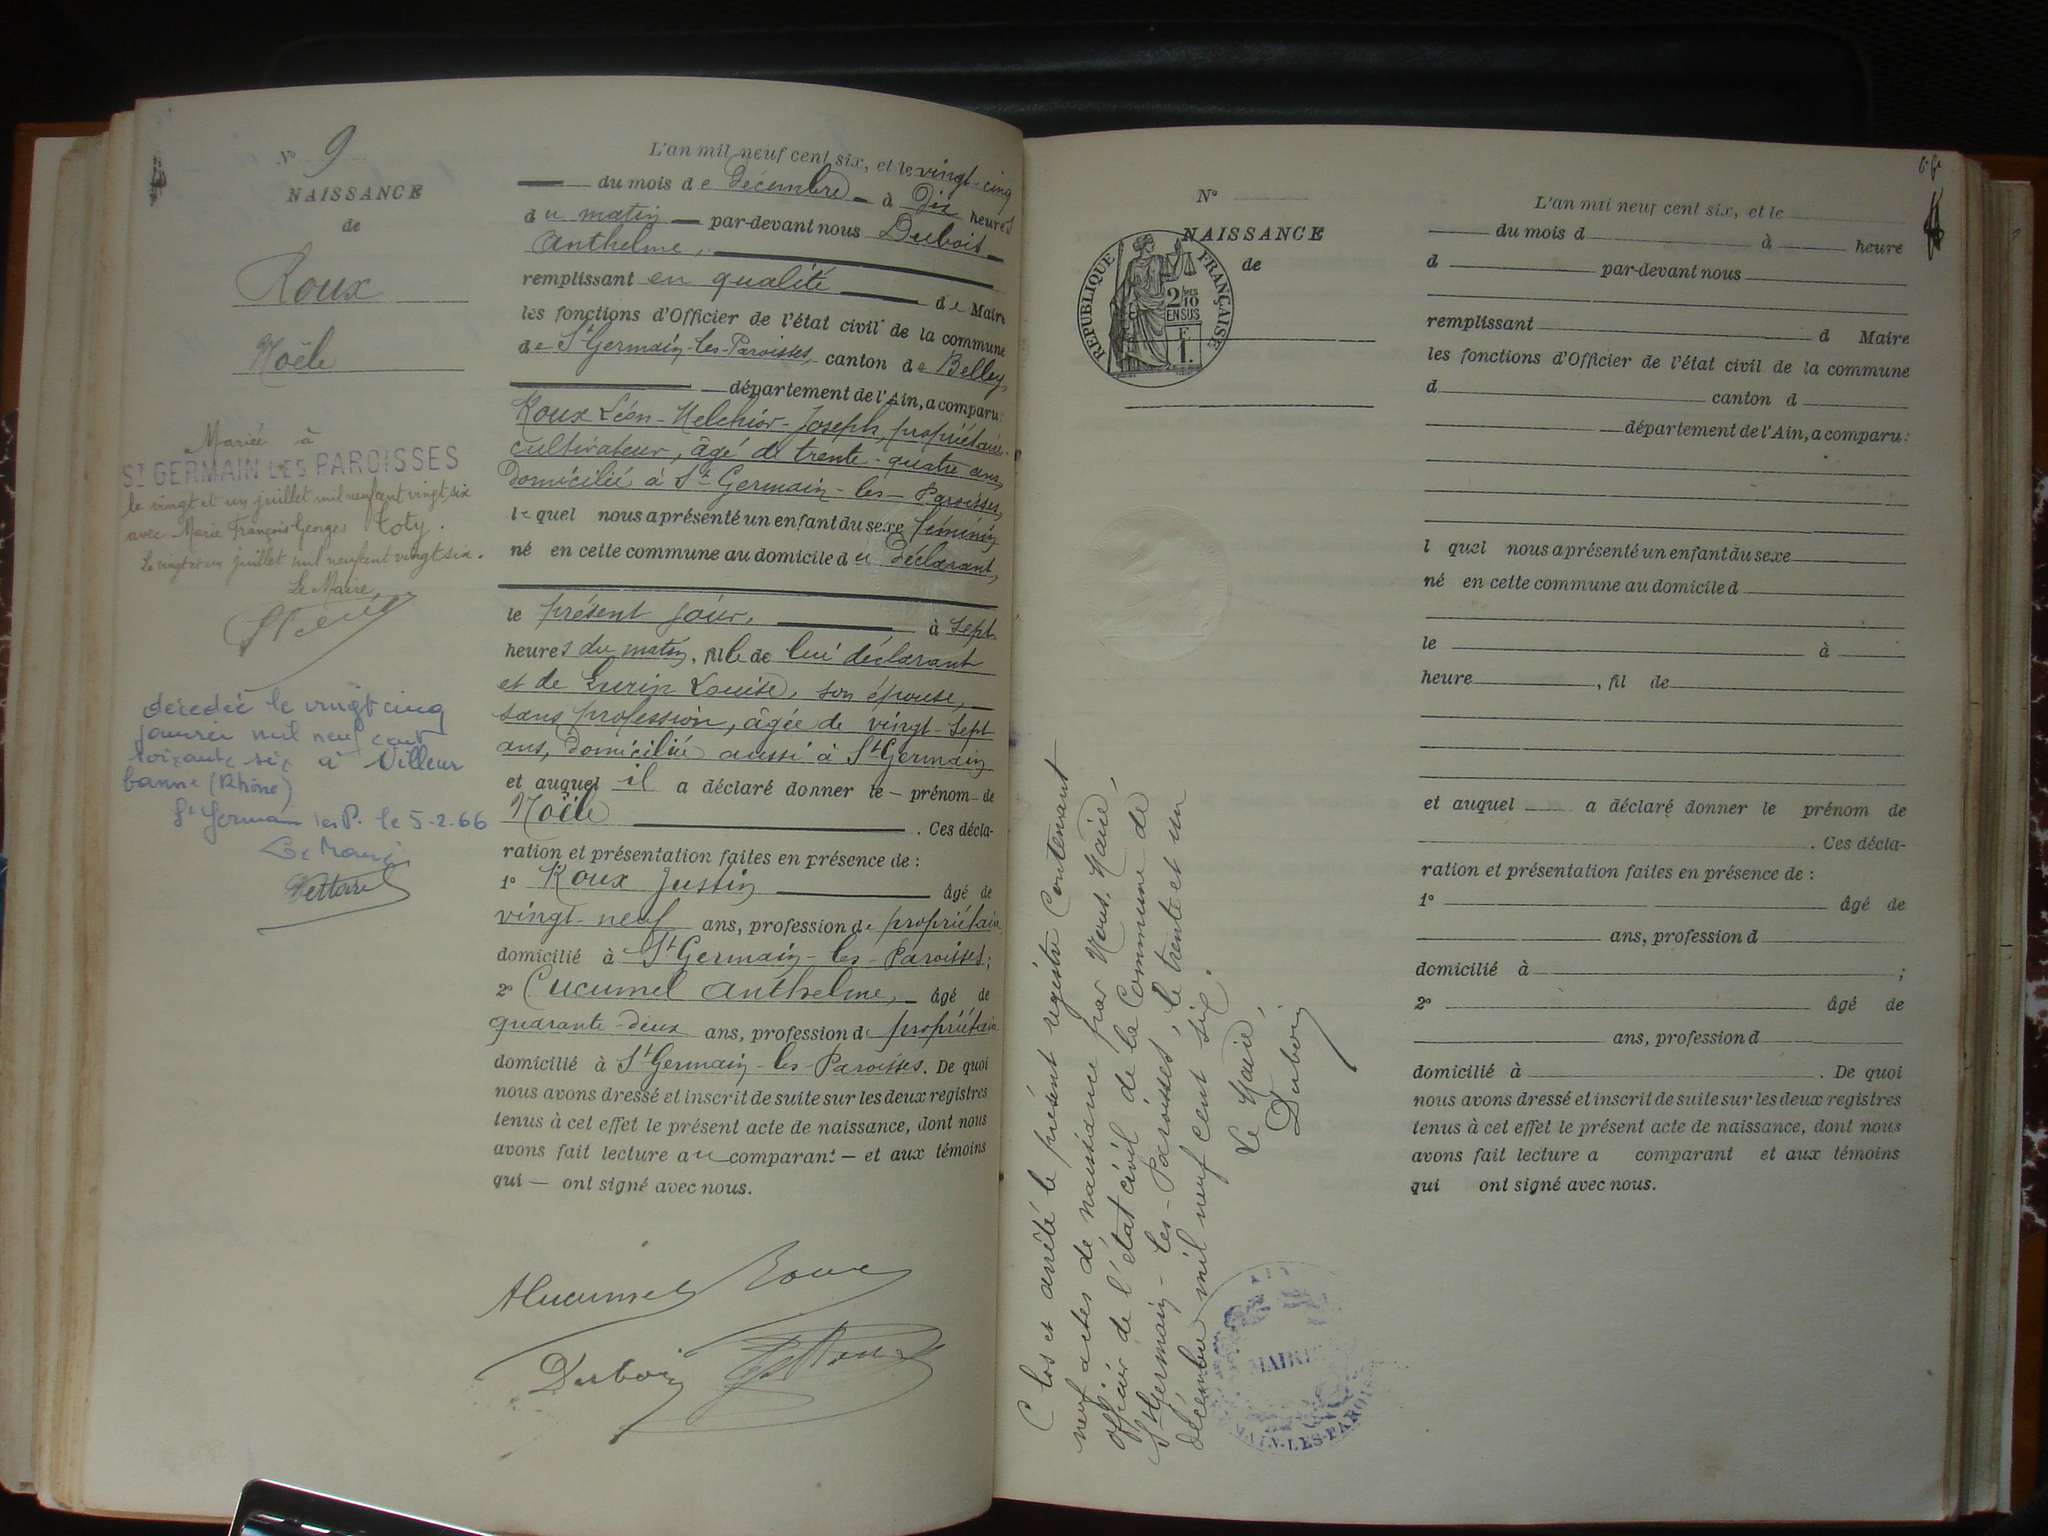 N° 9
NAISSANCE
de
Roux
Noële
Mariée à
ST GERMAIN LES PAROISSES
le vingt et un juillet mil neuf cent vingt six
avec Marie François Georges Toty.
Le vingt et un juillet mil neuf cent vingt six.
Le Maire,
décédée le vingt cinq
janvier mil neuf cent
soixante six à Villeur
banne (Rhône)
St Germain les P. le 5-2-66
Le Maire
L'an mil neuf cent six, et le vingt-cinq
du mois de Décembre à Dix heures
du matin par-devant nous Dubois
Anthelme,
remplissant en qualité de Maire
les fonctions d'Officier de l'état civil de la commune
de St Germain-les-Paroisses, canton de Belley,
département de l'Ain, a comparu:
Roux Léon-Melchior-Joseph, propriétaire-
cultivateur, âgé de trente-quatre ans,
domicilié à St Germain-les-Paroisses,
lequel nous a présenté un enfant du sexe féminin
né en cette commune au domicile du Déclarant,
le présent jour, à sept
heures du matin, fille de lui déclarant
et de Louise, son épouse,
sans profession, âgée de vingt-sept
ans, domiciliée aussi à St Germain
et auquel il a déclaré donner le prénom de
Noële. Ces décla-
ration et présentation faites en présence de :
1° Roux Justin âgé de
vingt-neuf ans, profession de propriétaire
domicilié à St Germain-les-Paroisses;
2° Cucumel Anthelme, âgé de
quarante-deux ans, profession de propriétaire
domicilié à St Germain-les-Paroisses. De quoi
nous avons dressé et inscrit de suite sur les deux registres
tenus à cet effet le présent acte de naissance, dont nous
avons fait lecture au comparant et aux témoins
qui ont signé avec nous.
A Cucumel Roux
Dubois
N°
NAISSANCE
de
REPUBLIQUE FRANÇAISE
2/10
EN SUS
F
1.
Clos et arrêté le présent registre Contenant
neuf actes de naissance par Nous, Maire,
officier de l'état civil de la Commune de
St Germain-les-Paroisses, le trente et un
décembre mil neuf cent six.
Le Maire,
Dubois
MAIRIE
LES-PAROIS
L'an mil neuf cent six, et le
du mois d à heure
d par-devant nous
remplissant d Maire
les fonctions d'Officier de l'état civil de la commune
d canton d
département de l'Ain, a comparu:
l quel nous a présenté un enfant du sexe
né en cette commune au domicile d
le à
heure , fil de
et auquel a déclaré donner le prénom de
. Ces décla-
ration et présentation faites en présence de :
1° âgé de
ans, profession d
domicilié à ;
2° âgé de
ans, profession d
domicilié à . De quoi
nous avons dressé et inscrit de suite sur les deux registres
tenus à cet effet le présent acte de naissance, dont nous
avons fait lecture a comparant et aux témoins
qui ont signé avec nous.